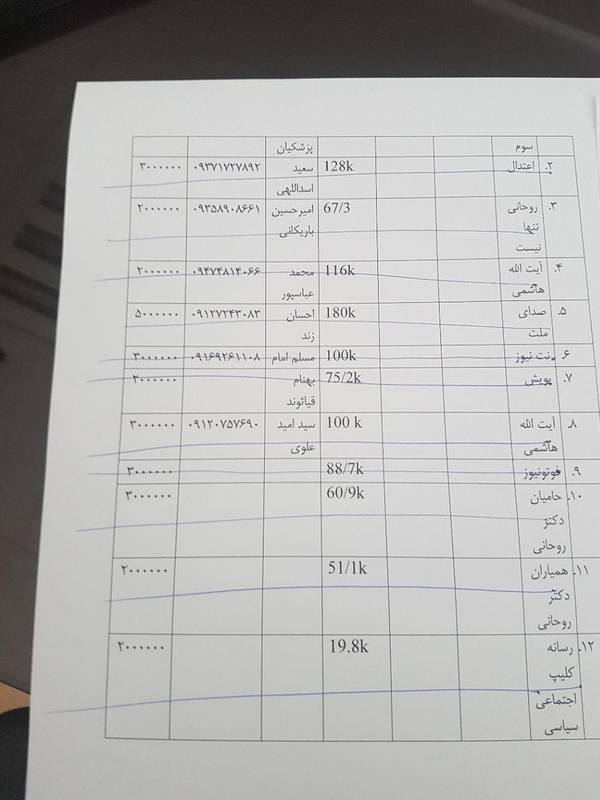 سوم پزشکیان
۲. اعتدال 128k سعید ۰۹۳۷۱۷۲۷۸۹۲ ۳۰۰۰۰۰۰
اسداللهی
۳. روحانی 67/3 امیرحسین ۰۹۳۵۸۹۰۸۶۶۱ ۲۰۰۰۰۰۰
تنها باریکانی
نیست
۴. آیت الله 116k محمد ۰۹۴۷۴۸۱۴۰۶۶ ۲۰۰۰۰۰۰
هاشمی عباسپور
۵. صدای 180k احسان ۰۹۱۲۷۲۴۳۰۸۳ ۵۰۰۰۰۰۰
ملت زند
۶. نت نیوز 100k مسلم امام ۰۹۱۶۹۲۶۱۱۰۸ ۳۰۰۰۰۰۰
۷. پویش 75/2k بهنام ۲۰۰۰۰۰۰
قیاثوند
۸. آیت الله 100 k سید امید ۰۹۱۲۰۷۵۷۶۹۰ ۳۰۰۰۰۰۰
هاشمی علوی
۹. فوتونیوز 88/7k ۳۰۰۰۰۰۰
۱۰. حامیان 60/9k ۳۰۰۰۰۰۰
دکتر
روحانی
۱۱. همیاران 51/1k ۲۰۰۰۰۰۰
دکتر
روحانی
۱۲. رسانه 19.8k ۲۰۰۰۰۰۰
کلیپ
اجتماعی
سیاسی